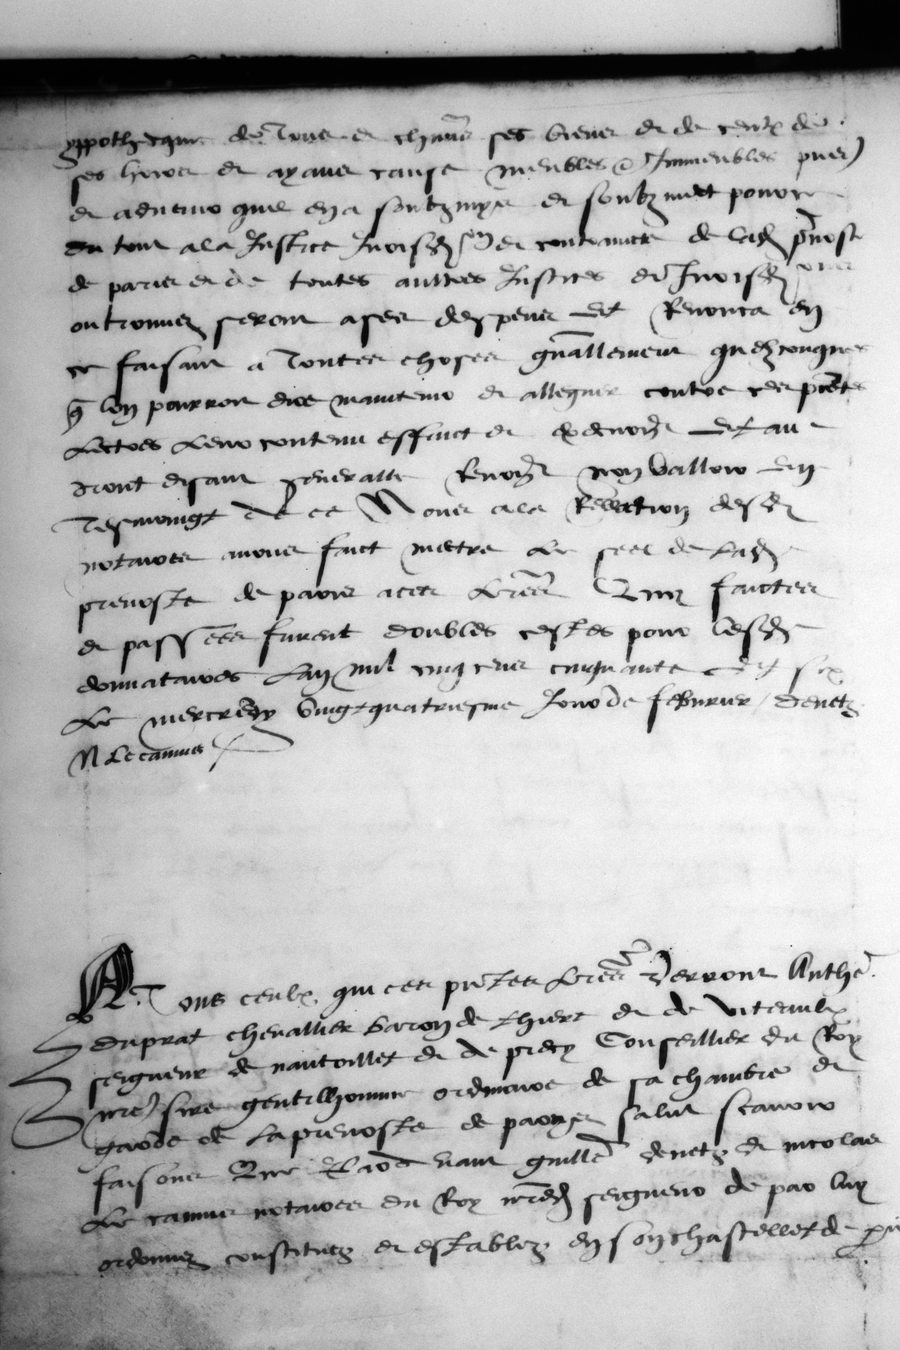 yppothecque de tous et chũns ses biens et de ceulx de
ses hoirs et ayans cause meubles & Immeubles pñs
et advenir quil en a soubzmys et soubzmect pour ce
du tout a la Justice Jurisdõn et contraincte de lad prevosté
de paris et de toutes aultres Justices et Jurisdõns ou
ou trouvez seront a ses despens Et Renonca en
ce faisant a toutes choses gñallement quelzconques
q̃ lon pourroit dire maintenir et alleguer contre ces pñtes
Lectres Leur contenu effect et execuõn Et au
droit disant generalle Renõn non valloir En
Tesmoingt de ce Nous a la Relation desd
notaires avons faict mectre Le seel de Lad
prevosté de paris a ces Lr̃es Qui faictes
et passées furent doubles cestes pour lesd
donnataires Lan mil cinq cens cinquante Et six
Le mercredy vingt quatriesme Jour de febvrier / Denetz
N Le camus
A Tous ceulx qui ces pñtes Lr̃es verront Anthe
duprat chevallier baron de thiert et de viteaulx
seigneur de nantoillet et de precy Conseillier du Roy
nr̃e sire gentilhomme ordinaire de sa chambre et
garde de La prevosté de paris Salut scavoir
faisons Que Par devant guille denetz et nicolas
Le camus notaires du Roy nr̃ed seigneur de par luy
ordonnez constituez et establez en son chastellet de par